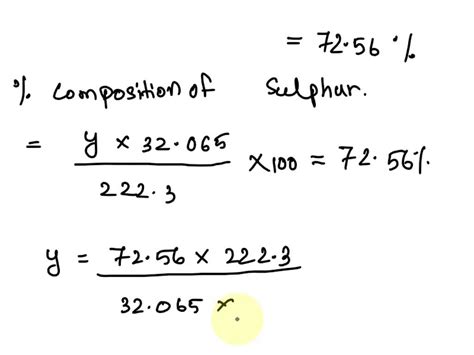 = 72.56 %
% composition of Sulphur.
= y × 32.065 / 222.3 × 100 = 72.56%
y = 72.56 × 222.3 / 32.065 ×